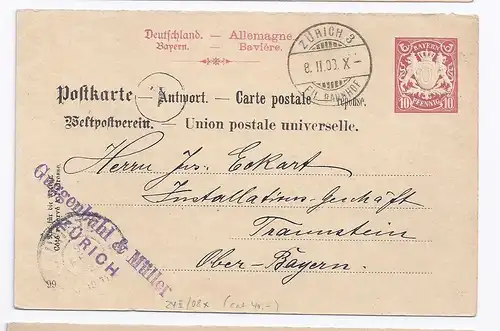 Deutschland. — Allemagne.
Bayern. — Bavière.
ZÜRICH 3
8. II. 00. X –
FIL. BAHNHOF
BAYERN
10 PFENNIG 10
Postkarte — Antwort. — Carte postale — réponse.
Weltpostverein. — Union postale universelle.
Herrn Jos. Eckart
Installations-Geschäft
Traunstein
Ober-Bayern.
& Müller
ZÜRICH
99